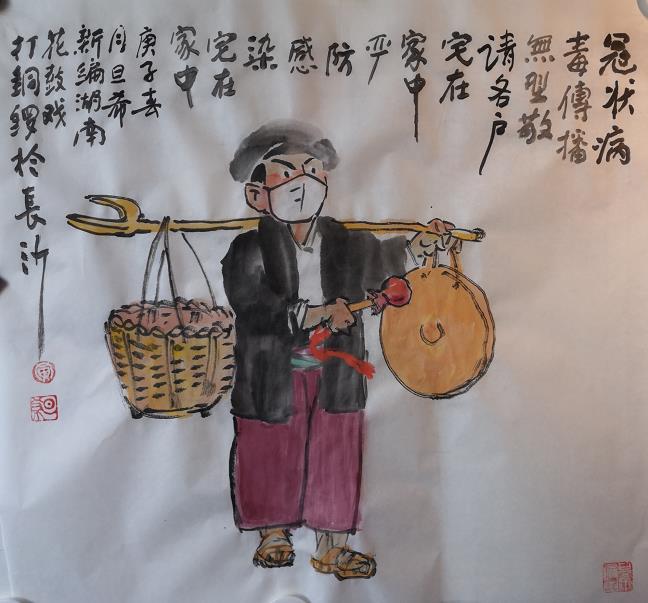 冠状病
毒傳播
無型敬
请各户
宅在
家中
严
防
感
染
宅在
家中
庚子春
月旦希
新编湖南
花鼓戏
打銅锣於長沙